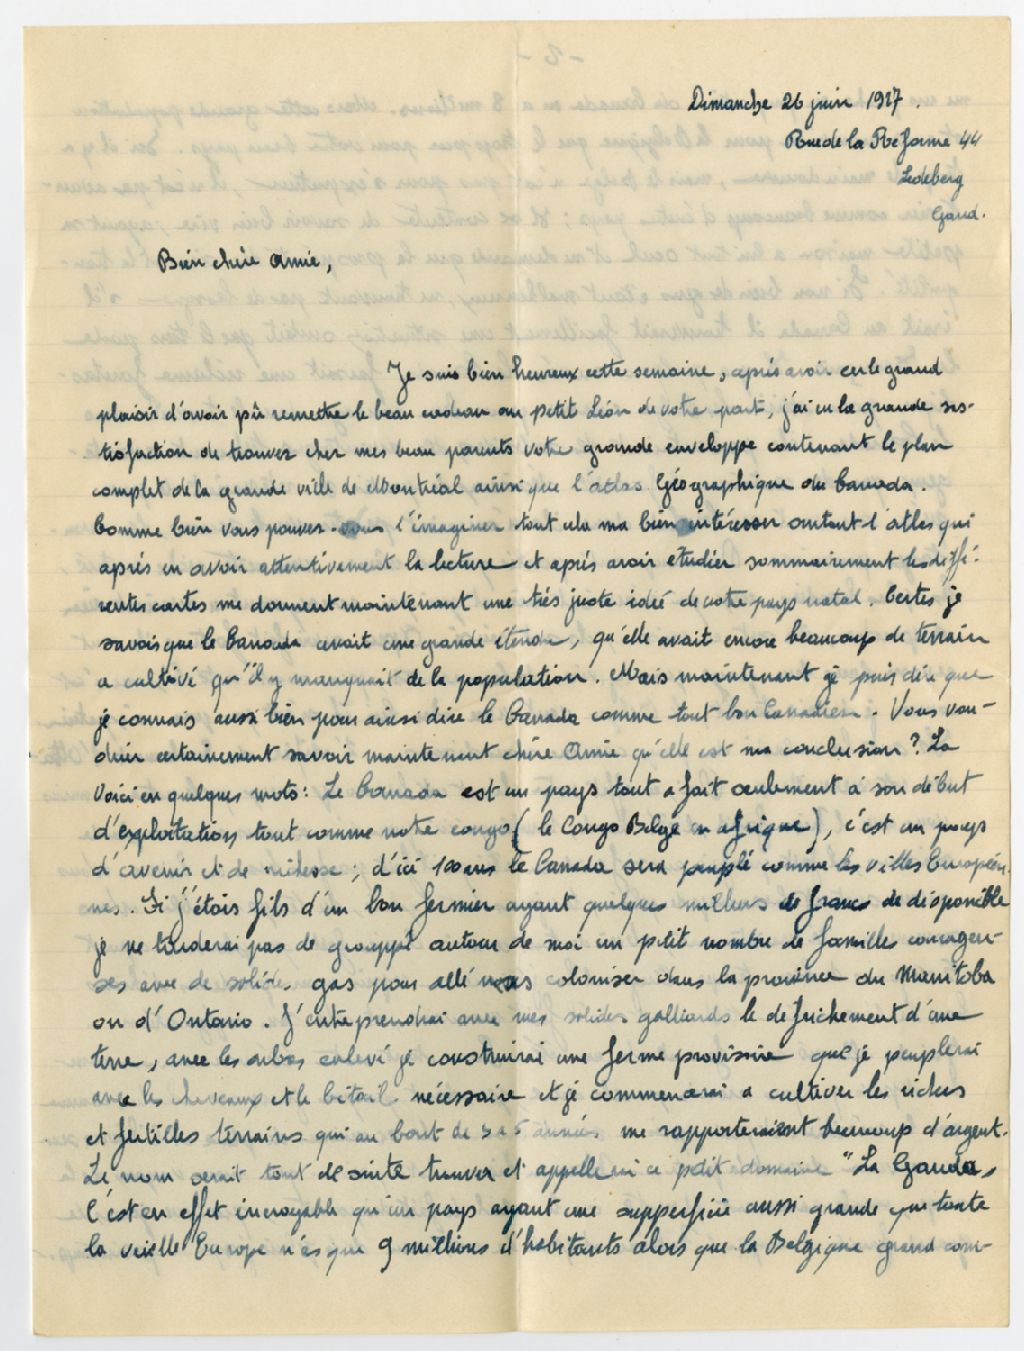 Dimanche 26 juin 1927.
Rue de la Réforme 44
Ledeberg
Gand.
Bien chère Amie,
Je suis bien heureux cette semaine, après avoir eu le grand
plaisir d'avoir pû remettre le beau cadeau au petit Léon de votre part, j'ai eu la grande sas-
tisfaction de trouver cher mes beau parents votre grande enveloppe contenant le plan
complet de la grande ville de Montréal ainsi que l'atlas Géographique du Canada.
Comme bien vous pouvez-vous l'imaginer tout cela ma bien intéresser autant l'atlas qui
après en avoir attentivement la lecture et après avoir étudier sommairement les diffé-
rentes cartes me donnent maintenant une très juste idée de votre pays natal. Certes je
savais que le Canada avait une grande étendu, qu'elle avait encore beaucoup de terrain
a cultivé qu'il y manquait de la population. Mais maintenant je puis dire que
je connais aussi bien pour ainsi dire le Canada comme tout bon Canadien. Vous vou-
drier certainement savoir maintenant chère Amie qu'elle est ma conclusion? La
voici en quelques mots: Le Canada est un pays tout a fait seulement à son début
d'exploitation tout comme notre congo (le Congo Belge en afrique), c'est un pays
d'avenir et de richesse; d'ici 100 ans le Canada sera peuplé comme les villes Européen-
nes. Si j'étais fils d'un bon fermier ayant quelques milliers de francs de disponible
je ne tarderai pas de grouppé autour de moi un ptit nombre de familles courageu-
ses avec de solides gas pour allé nous coloniser dans la province du Manitoba
ou d'Ontario. J'entreprendrai avec mes solides galliards le defrichement d'une
terre, avec les arbres enlevé je construirai une ferme provisoire que je peuplerai
avec les cheveaux et le bétail nécessaire et je commencerai a cultiver les riches
et fertilles terrains qui au bout de 3 a 5 années me rapporteraient beaucoup d'argent.
Le nom serait tout de suite trouver et appellerai ce ptit domaine "La Gauda,
C'est en effet incroyable qu'un pays ayant une supperficie aussi grande que toute
la vieille Europe n'as que 9 millions d'habitants alors que la Belgique grand com-